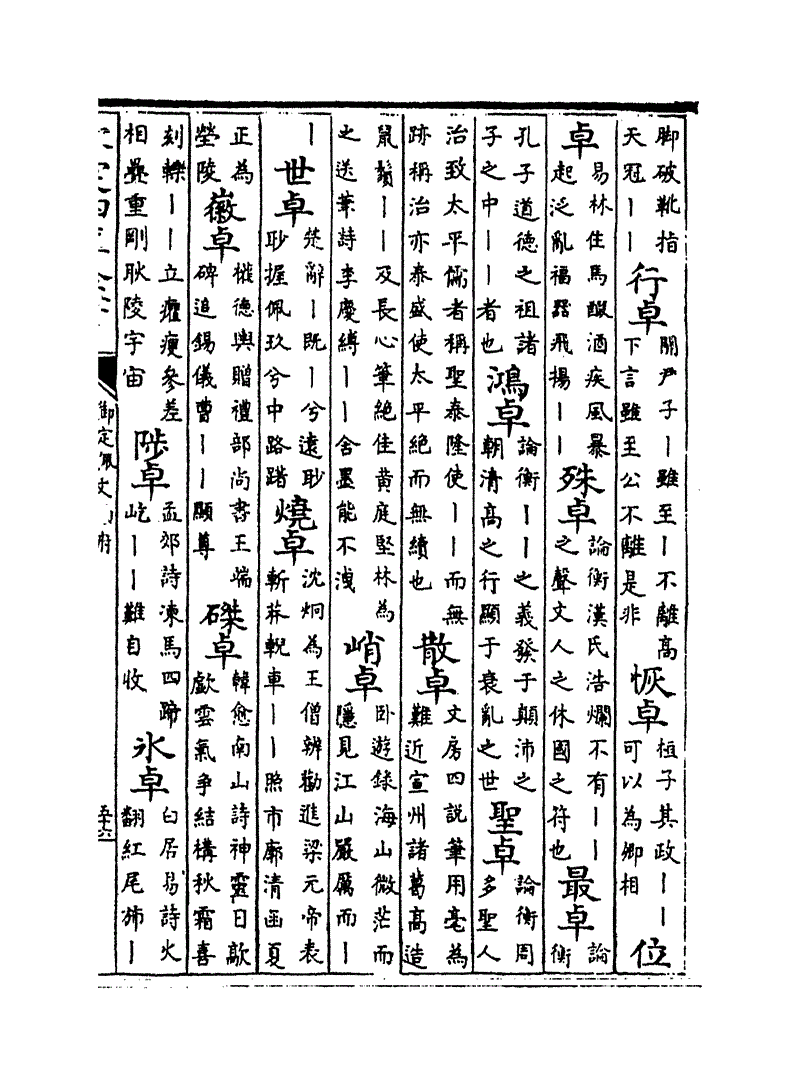 脚破靴指天冠丨丨 行卓 關尹子丨雖至丨不離高下言雖至公不離是非 恢卓 桓子其政丨丨可以為卿相 位
卓 易林住馬醊酒疾風暴起泛亂福器飛揚丨丨 殊卓 論衡漢氏浩爛不有丨丨之聲文人之休國之符也 最卓 論衡
孔子道德之祖諸子之中丨丨者也 鴻卓 論衡丨丨之義發于顛沛之朝清高之行顯于衰亂之世 聖卓 論衡周多聖人
治致太平儒者稱聖泰隆使丨丨而無跡稱治亦泰盛使太平絕而無續也 散卓 文房四說筆用毫為難近宣州諸葛高造
鼠鬚丨丨及長心筆絕佳黄庭堅林為之送筆詩李慶縛丨丨含墨能不洩 峭卓 卧遊錄海山微茫而隱見江山嚴厲而丨
丨 世卓 楚辭丨既丨兮遠眇眇握佩玖兮中路躇 燒卓 沈炯為王僧辨勸進梁元帝表斬莽輗車丨丨照市廓清函夏
正為塋陵 徽卓 權德輿贈禮部尚書王端碑追錫儀曹丨丨顯尊 磔卓 韓愈南山詩神靈日歊歔雲氣爭結構秋霜喜
刻轢丨丨立癯瘦參差相疊重剛耿陵宇宙 陟卓 孟郊詩凍馬四蹄屹丨丨難自收 氷卓 白居易詩火翻紅尾旆丨
御定佩文府
五十六